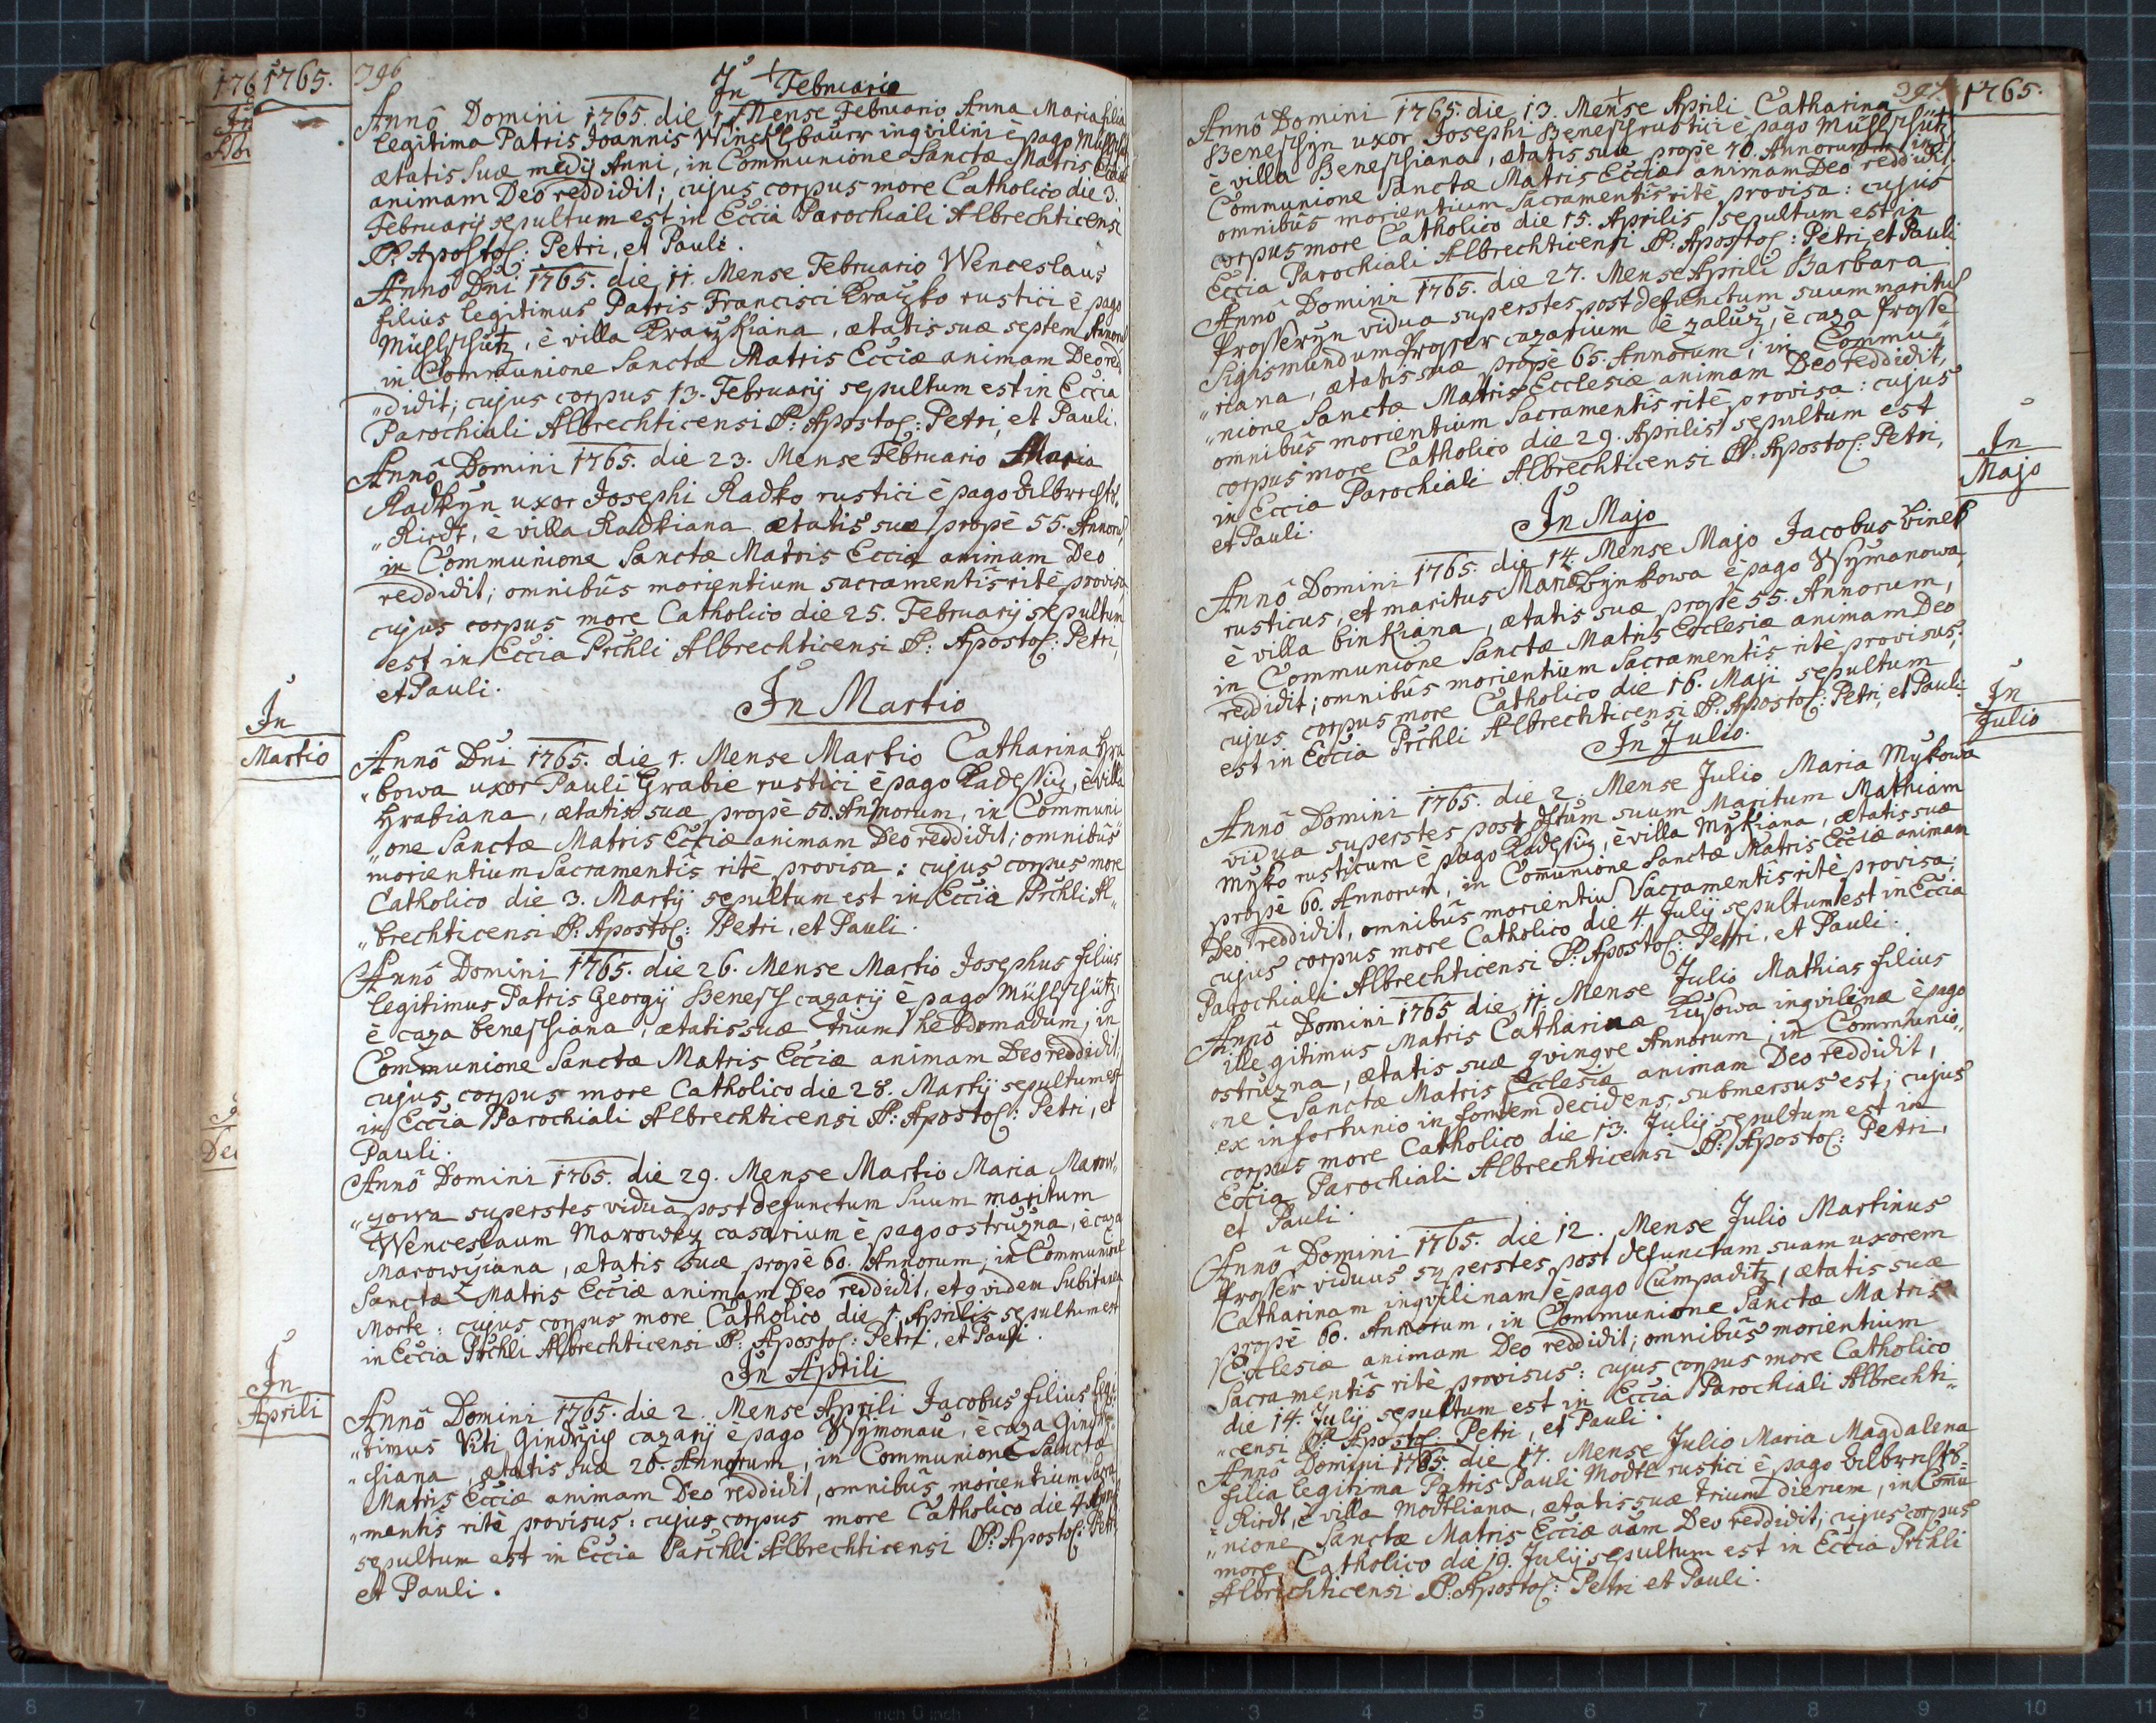 1765.
396
In Februario
Annô Domini 1765. die 1. Mense Februario Anna Maria filia
legitima Patris Joannis ingvilini è pago
ætatis suæ medÿ Anni, in Communione Sanctæ Matris Ecciæ
animam Deo reddidit; cujus corpus more Catholico die 3.
Februarÿ sepultum est in Eccia Parochiali Albrechticensi
P: Apostol: Petri, et Pauli.
Annô Dni 1765. die 11. Mense Februario Wenceslaus
filius legitimus Patris Francisci Krayzko rustici è pago
Mühlschütz, è villa Krayzkiana, ætatis suæ septem Annoru
in Communione Sanctæ Matris Ecciæ animam Deo red
„didit; cujus corpus 13. Februarÿ sepultum est in Eccia
Parochiali Albrechticensi P: Apostol: Petri, et Pauli.
Annô Domini 1765. die 23. Mense Februario Maria
Radkÿn uxor Josephi Radko rustici è pago Albrechts
„Riedt, è villa Radkiana ætatis suæ propè 55. Annoru,
in Communione Sanctæ Matris Ecciæ animam Deo
reddidit; omnibûs morientium sacramentîs ritè provisa,
cujus corpus more Catholico die 25. Februarÿ sepultum
est in Eccia Prchli Albrechticensi P: Apostol: Petri,
et Pauli.
In Martio
In
Martio
Annô Dni 1765. die 1. Mense Martio Catharina Hra
„bowa uxor Pauli Grabie rustici è pago Kadeschiz, è villa
Hrabiana, ætatis suæ propè 50. Annorum, in Communi
„one Sanctæ Matris Ecciæ animam Deo reddidit; omnibûs
morientium Sacramentîs ritè provisa: cujus corpus more
Catholico die 3. Martÿ sepultum est in Eccia Prchli Al„
„brechticensi P: Apostol: Petri, et Pauli.
Annô Domini 1765. die 26. Mense Martio Josephus filius
legitimus Patris Georgÿ Benesch cazarÿ è pago Mühlschütz,
è caza beneschiana, ætatis suæ trium hebdomadum, in
Communione Sanctæ Matris Ecciæ animam Deo reddidit,
cujus corpus more Catholico die 28. Martÿ sepultum est
in Eccia Parochiali Albrechticensi P: Apostol: Petri, et
Pauli.
Annô Domini 1765. die 29. Mense Martio Maria Marow„
„zowa superstes vidua post defunctum suum maritum
Wenceslaum Marowez casarium è pago ostruzna, è caza
Marowyiana, ætatis suæ propè 60. Annorum, in Communione
Sanctæ Matris Ecciæ animam Deo reddidit, et qvidem Subitanea
Morte: cujus corpus more Catholico die 1. Aprilis sepultum est
in Eccia Prchli Albrechticensi P: Apostol: Petri, et Pauli.
In Aprili
In
Aprili
Annô Domini 1765. die 2. Mense Aprili Jacobus filius legi
„timus Viti cazarÿ è pago Wsymonau, è caza
„chiana, ætatis suæ 20. Annorum, in Communione Sanctæ
Matris Ecciæ animam Deo reddidit, omnibûs morientium Sacra
„mentis ritè provisus: cujus corpus more Catholico die 4. Aprilis
sepultum est in Eccia Parchli Albrechticensi P: Apostol: Petri,
et Pauli.
397.
1765.
Annô Domini 1765. die 13. Mense Aprili Catharina
Beneschÿn uxor Josephi Benesch rustici è pago Mühlschütz,
è villa Beneschiana, ætatis suæ propè 70. Annorum, in
Communione Sanctæ Matris Ecciæ animam Deo reddidit,
omnibûs morientium Sacramentîs ritè provisa: cujus
corpus more Catholico die 15. Aprilis sepultum est in
Eccia Parochiali Albrechticensi P: Apostol: Petri, et Pauli
Annô Domini 1765. die 27. Mense Aprili Barbara
Prosserÿn vidua superstes post defunctum suum maritum
Sigismundum Prosser cazarium è zaluz, è caza Prosse
„riana, ætatis suæ propè 65. Annorum, in Commu„
„nione Sanctæ Matris Ecclesiæ animam Deo reddidit,
omnibûs morientium Sacramentîs ritè provisa: cujus
corpus more Catholico die 29. Aprilis sepultum est
in Eccia Parochiali Albrechticensi P: Apostol: Petri,
et Pauli.
In Majo
In
Majo
Annô Domini 1765. die 14. Mense Majo Jacobus binek
rusticus, et maritus Mariæ Bÿnkowa è pago Wsymanowa,
è villa binkiana, ætatis suæ propè 55. Annorum,
in Communione Sanctæ Matris Ecclesiæ animam Deo
reddidit; omnibûs morientium Sacramentîs ritè provisus,
cujus corpus more Catholico die 16. Maji sepultum
est in Eccia Prchli Albrechticensi P: Apostol: Petri, et Pauli
In Julio.
In
Julio
Annô Domini 1765. die 2. Mense Julio Maria Mykowa
vidua superstes post dftum suum Maritum Mathiam
Myko rusticum è pago Kadeschiz, è villa Mykiana, ætatis suæ
propè 60. Annorum, in Communione Sanctæ Matris Ecciæ animam
Deo reddidit, omnibûs morientiu Sacramentîs ritè provisa;
cujus corpus more Catholico die 4. Julÿ sepultum est in Eccia
Parochiali Albrechticensi P: Apostol: Petri, et Pauli.
Annô Domini 1765 die 11. Mense Julio Mathias filius
illegitimus Matris Catharinæ ingvilinæ è pago
ostruzna, ætatis suæ qvinqve Annorum, in Communio„
„ne Sanctæ Matris Ecclesiæ animam Deo reddidit,
ex infortunio in fontem decidens, submersus est; cujus
corpus more Catholico die 13. Julÿ sepultum est in
Eccia Parochiali Albrechticensi P: Apostol: Petri,
et Pauli.
Annô Domini 1765. die 12. Mense Julio Martinus
Prosser viduus superstes post defunctam suam uxorem
Catharinam ingvilinam è pago Cumpaditz, ætatis suæ
propè 60. Annorum, in Communione Sanctæ Matris
Ecclesiæ animam Deo reddidit; omnibûs morientium
Sacramentîs ritè provisus: cujus corpus more Catholico
die 14. Julÿ sepultum est in Eccia Parochiali Albrechti„
„censi P: Apostol: Petri, et Pauli.
Annô Domini 1765. die 17. Mense Julio Maria Magdalena
filia legitima Patris Pauli Modtl rustici è pago Albrechts=
=Riedt, è villa Modtliana, ætatis suæ trium dierum, in Comu
„nione Sanctæ Matris Ecciæ aam Deo reddidit; cujus corpus
more Catholico die 19. Julÿ sepultum est in Eccia Prchli
Albrechticensi P: Apostol: Petri et Pauli.